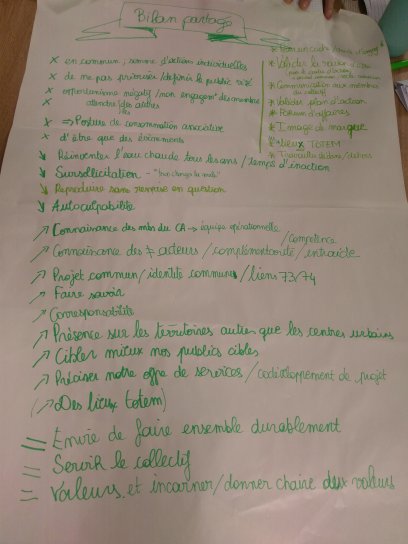 Bilan partagé
x en commun, somme d'actions individuelles
x de ne pas prioriser/definir le public visé
x opportunisme négatif/non engagement des membres
attendre des autres
x => Posture de consommation associative
x d'être que des évènements
↘ Réinventer l'eau chaude tous les ans / temps d'inaction
↘ Sursollicitation - "
↘ Reproduire sans remise en question
↘ Autoculpabilité
* Valider la raison d'être
* Communication aux membres
du collectif
* Valider plan d'action
* Forum d'affaires
* Image de marque
* Lieux TOTEM
* Travailler dedans/dehors
↗ Connaissance des mbs du CA → équipe opérationnelle
/compétence
↗ Connaissance des ≠ acteurs / complémentarité / entraide
↗ Projet commun/identité commune/liens 73/74
↗ Faire savoir
↗ Corresponsabilité
↗ Présence sur les territoires autres que les centres urbains
↗ Cibler mieux nos publics cibles
↗ Préciser notre offre de services / codéveloppement de projet
(↗ Des lieux totem)
= Envie de faire ensemble durablement
= Servir le collectif
= Valeurs et incarner/donner chaire aux valeurs